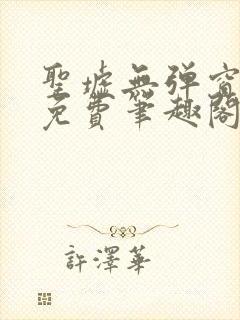 聖墟無彈窗
免費筆趣閣
許澤華